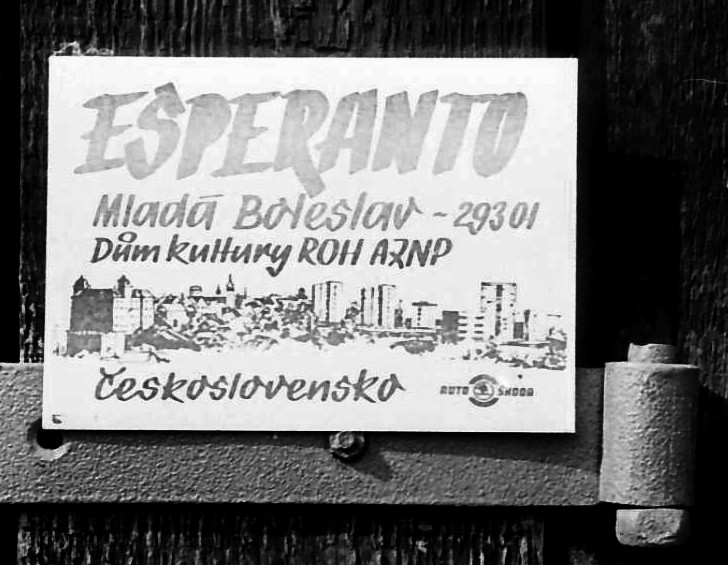 ESPERANTO
Mladá Boleslav - 29301
Dům kultury ROH AZNP
Československo
AUTO ŠKODA